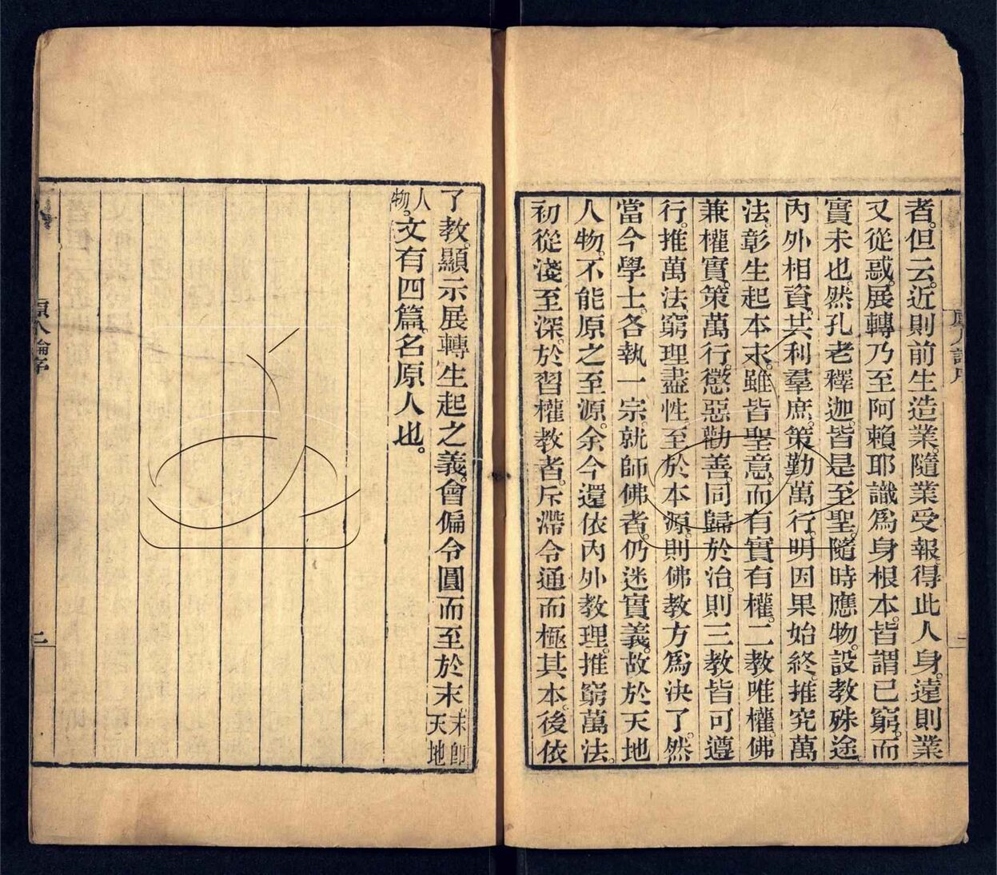 者但云。近則前生造業。隨業受報得此人身。遠則業
又從惑。展轉乃至阿賴耶識爲身根本。皆謂已窮。而
實未也。然孔老釋迦皆是至聖。隨時應物。設教殊途。
內外相資。共利羣庶。策勤萬行。明因果始終。推究萬
法。彰生起本末。雖皆聖意。而有實有權。二教唯權。佛
兼權實。策萬行。懲惡勸善。同歸於治。則三教皆可遵
行。推萬法。窮理盡性。至於本源。則佛教方爲決了。然
當今學士。各執一宗。就師佛者。仍迷實義。故於天地
人物。不能原之至源。余今還依內外教理。推窮萬法。
初從淺至深。於習權教者。斥滯令通。而極其本。後依
了教。顯示展轉生起之義。會偏令圓。而至於末末卽天地
人物。文有四篇。名原人也。
原人論序
二